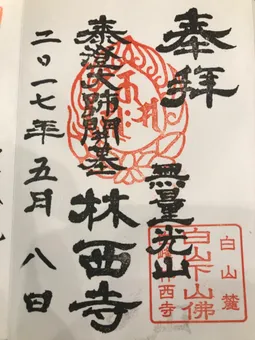 奉拝
無量光山
泰澄大師開基
林西寺
二〇一七年五月八日
白山麓
白山下山佛
林西寺